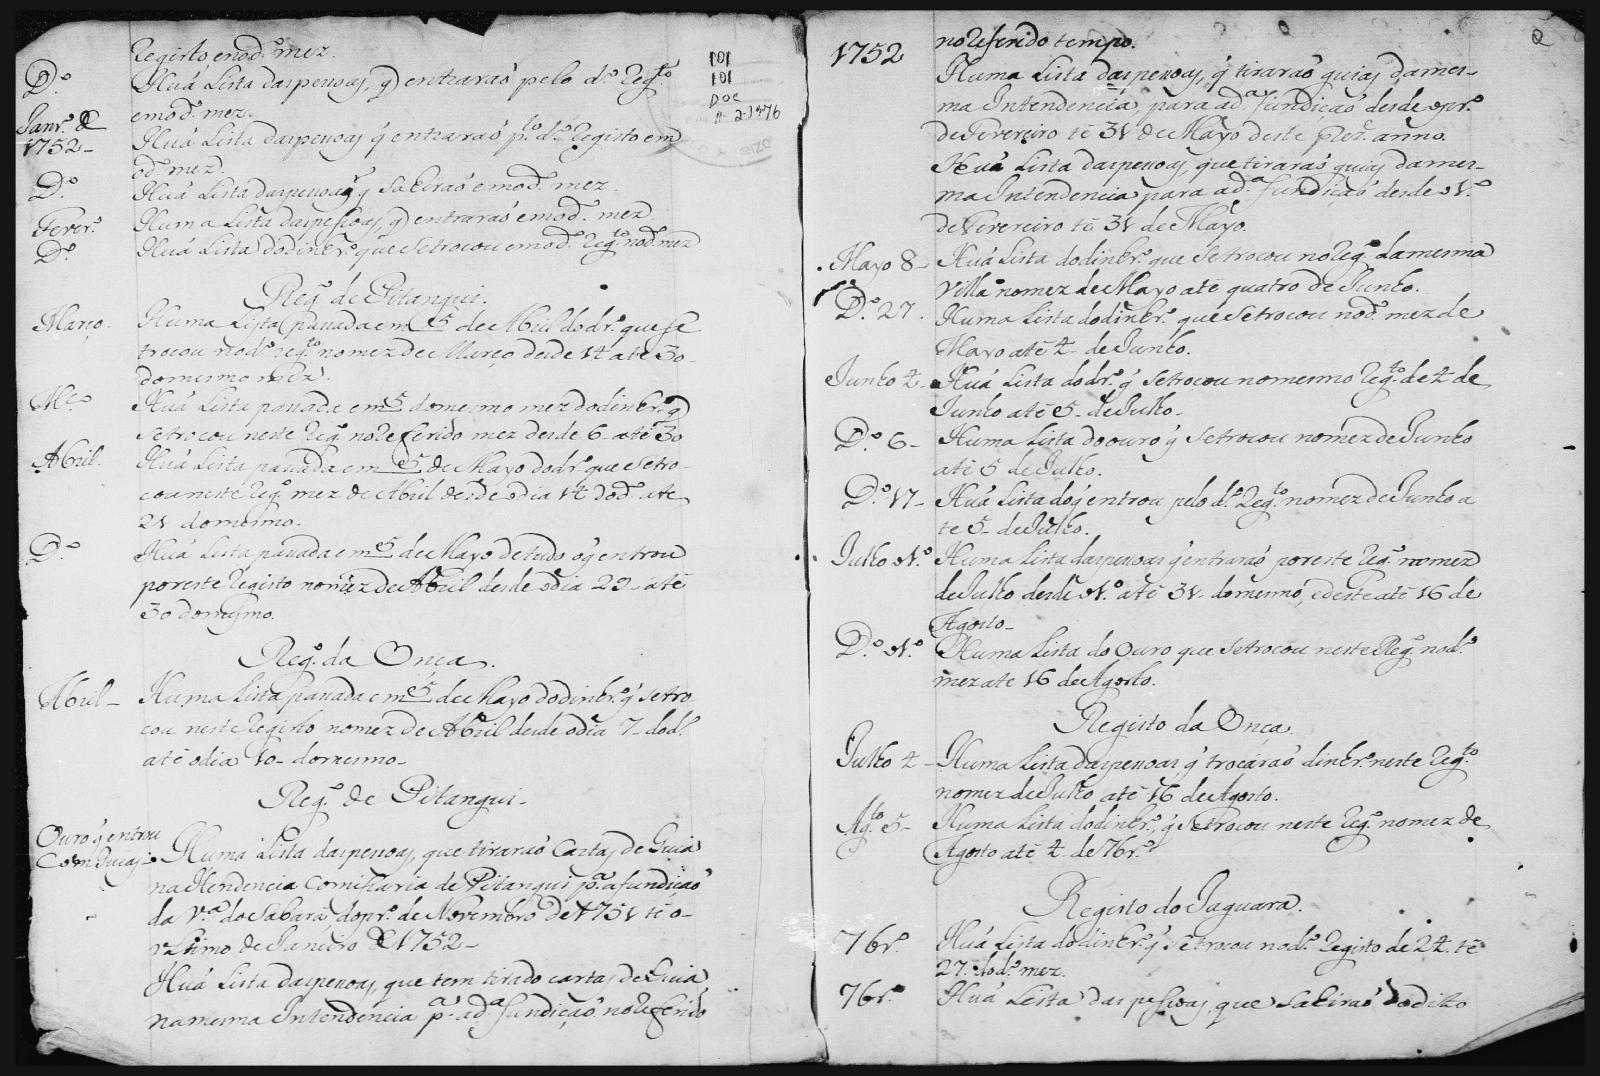 Registo em od.º mez.
D.º Huá Lista das pessoas, q̃ entraraó pelo d.º Reg.to
em od.º mez.
Janr.º de 1752_ Huá Lista das pessoas q̃ entraraó p.to d.º Registo em
od.º mez.
D.º Huá Lista das pessoas q̃ Sahiraó em od.º mez.
Fever.º Huma Lista das pessoas, q̃ entraraó em od.º mez.
D.º Huá Lista do dinhr.º que se trocou em od.º Reg.to no d.º mez
Reg.º de Pitangui.
Março. Huma Lista passada em 5 de Abril do dr.º que se
trocou no d.º reg.to no mez de Março desde 14 até 30
do mesmo mez.
M.ço Huá Lista passada em 5 do mesmo mez do dinhr.º q̃
se trocou neste Reg.º no referido mez desde 6 até 30
Abril. Huá Lista passada em 5 de Mayo do dr.º que se tro-
cou neste Reg.º mez de Abril desde o dia 14 do d.º até
21 do mesmo.
D.º Huá Lista passada em 5 de Mayo de tudo o q̃ entrou
por este Registo no mez de Abril desde o dia 29 até
30 do mesmo.
Reg.º da Onca.
Abril_ Huma Lista passada em 5 de Mayo do dinhr.º q̃ se tro-
cou neste Registo no mez de Abril desde o dia 7 do d.º
até o dia 10 do mesmo_
Reg.º de Pitangui_
Ouro q̃ entrou
Com Guias. Huma Lista das pessoas, que tiraraó Cartas de Guia
na Itendencia Comissaria de Pitangui p.ª a fundiçaó
da V.ª do Sabará do pr.º de Novembro de 1751 té o
ultimo de Janeiro de 1752_
Huá Lista das pessoas, que tem tirado cartas de Guia
na mesma Intendencia p.ª a d.ª fundiçaó no referido
101
101
DOC
n. 2-1476
2
1752 no referido tempo.
Huma Lista das pessoas, q̃ tiraraó guias da mes-
ma Intendencia, para a d.ª fundiçaó desde o pr.º
de Fevereiro té 31 de Mayo deste prez.e anno.
Huá Lista das pessoas, que tiraraó guias da mes-
ma Intendencia para a d.ª fundiçaó desde o 1.º
de Fevereiro té 31 de Mayo.
Mayo 8_ Huá Lista do dinhr.º que se trocou no Reg.º da mesma
Villa no mez de Mayo até quatro de Junho.
D.º 27. Huma Lista do dinhr.º que se trocou no d.º mez de
Mayo até 4 de Junho.
Junho 4_ Huá Lista do dr.º q̃ se trocou no mesmo Reg.to de 4 de
Junho até 5 de Julho_
D.º 6_ Huma Lista do ouro q̃ se trocou no mez de Junho
até 5 de Julho.
D.º 17_ Huá Lista do q̃ entrou pelo d.º Reg.to no mez de Junho a
te 5 de Julho.
Julho o 1.º Huma Lista das pessoas q̃ entraraó por este Reg.º no mez
de Julho desde o 1.º até 31 do mesmo, e deste até 16 de
Agosto_
D.º o 1.º Huma Lista do Ouro que se trocou neste Reg.º no d.º
mez ate 16 de Agosto.
Registo da Onca
Julho 4_ Huma Lista das pessoas q̃ trocáraó dinhr.º neste Reg.to
no mez de Julho até 16 de Agosto.
Ag.to 5_ Huma Lista do dinhr.º, q̃ se trocou neste Reg.º no mez de
Agosto até 4 de 7br.º
Registo do Jaguara.
7br.º Huá Lista do dinhr.º q̃ se trocou no d.º Registo de 24 té
27 do d.º mez.
7br.º Huá Lista das pessoas, que Sahiraó do ditto